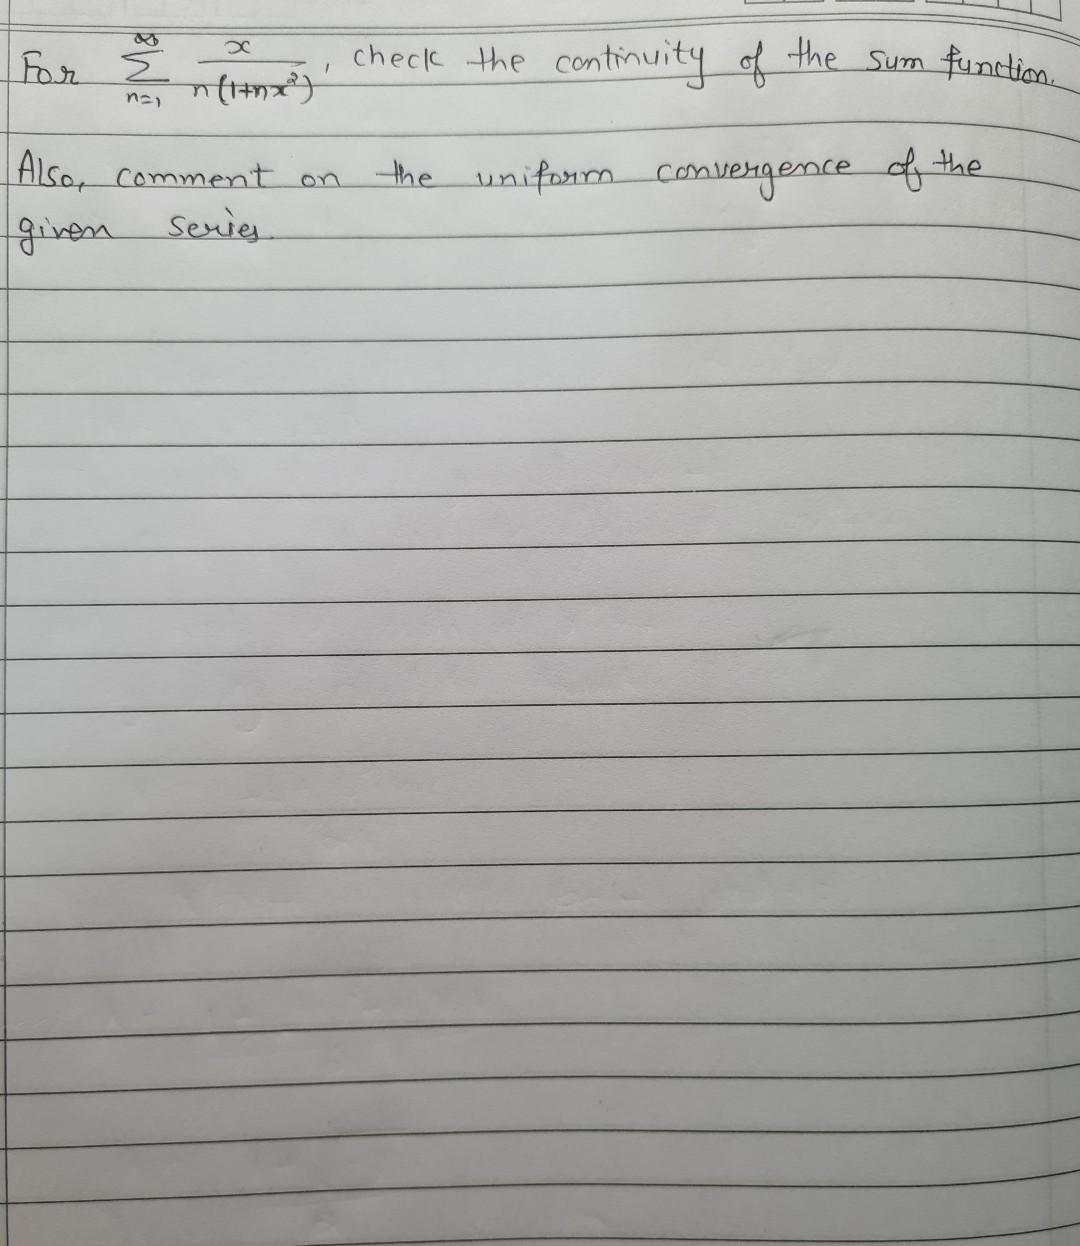 For ∞∑n=1 x/n(1+nx²), check the continuity of the sum function.
Also, comment on the uniform convergence of the
given series.